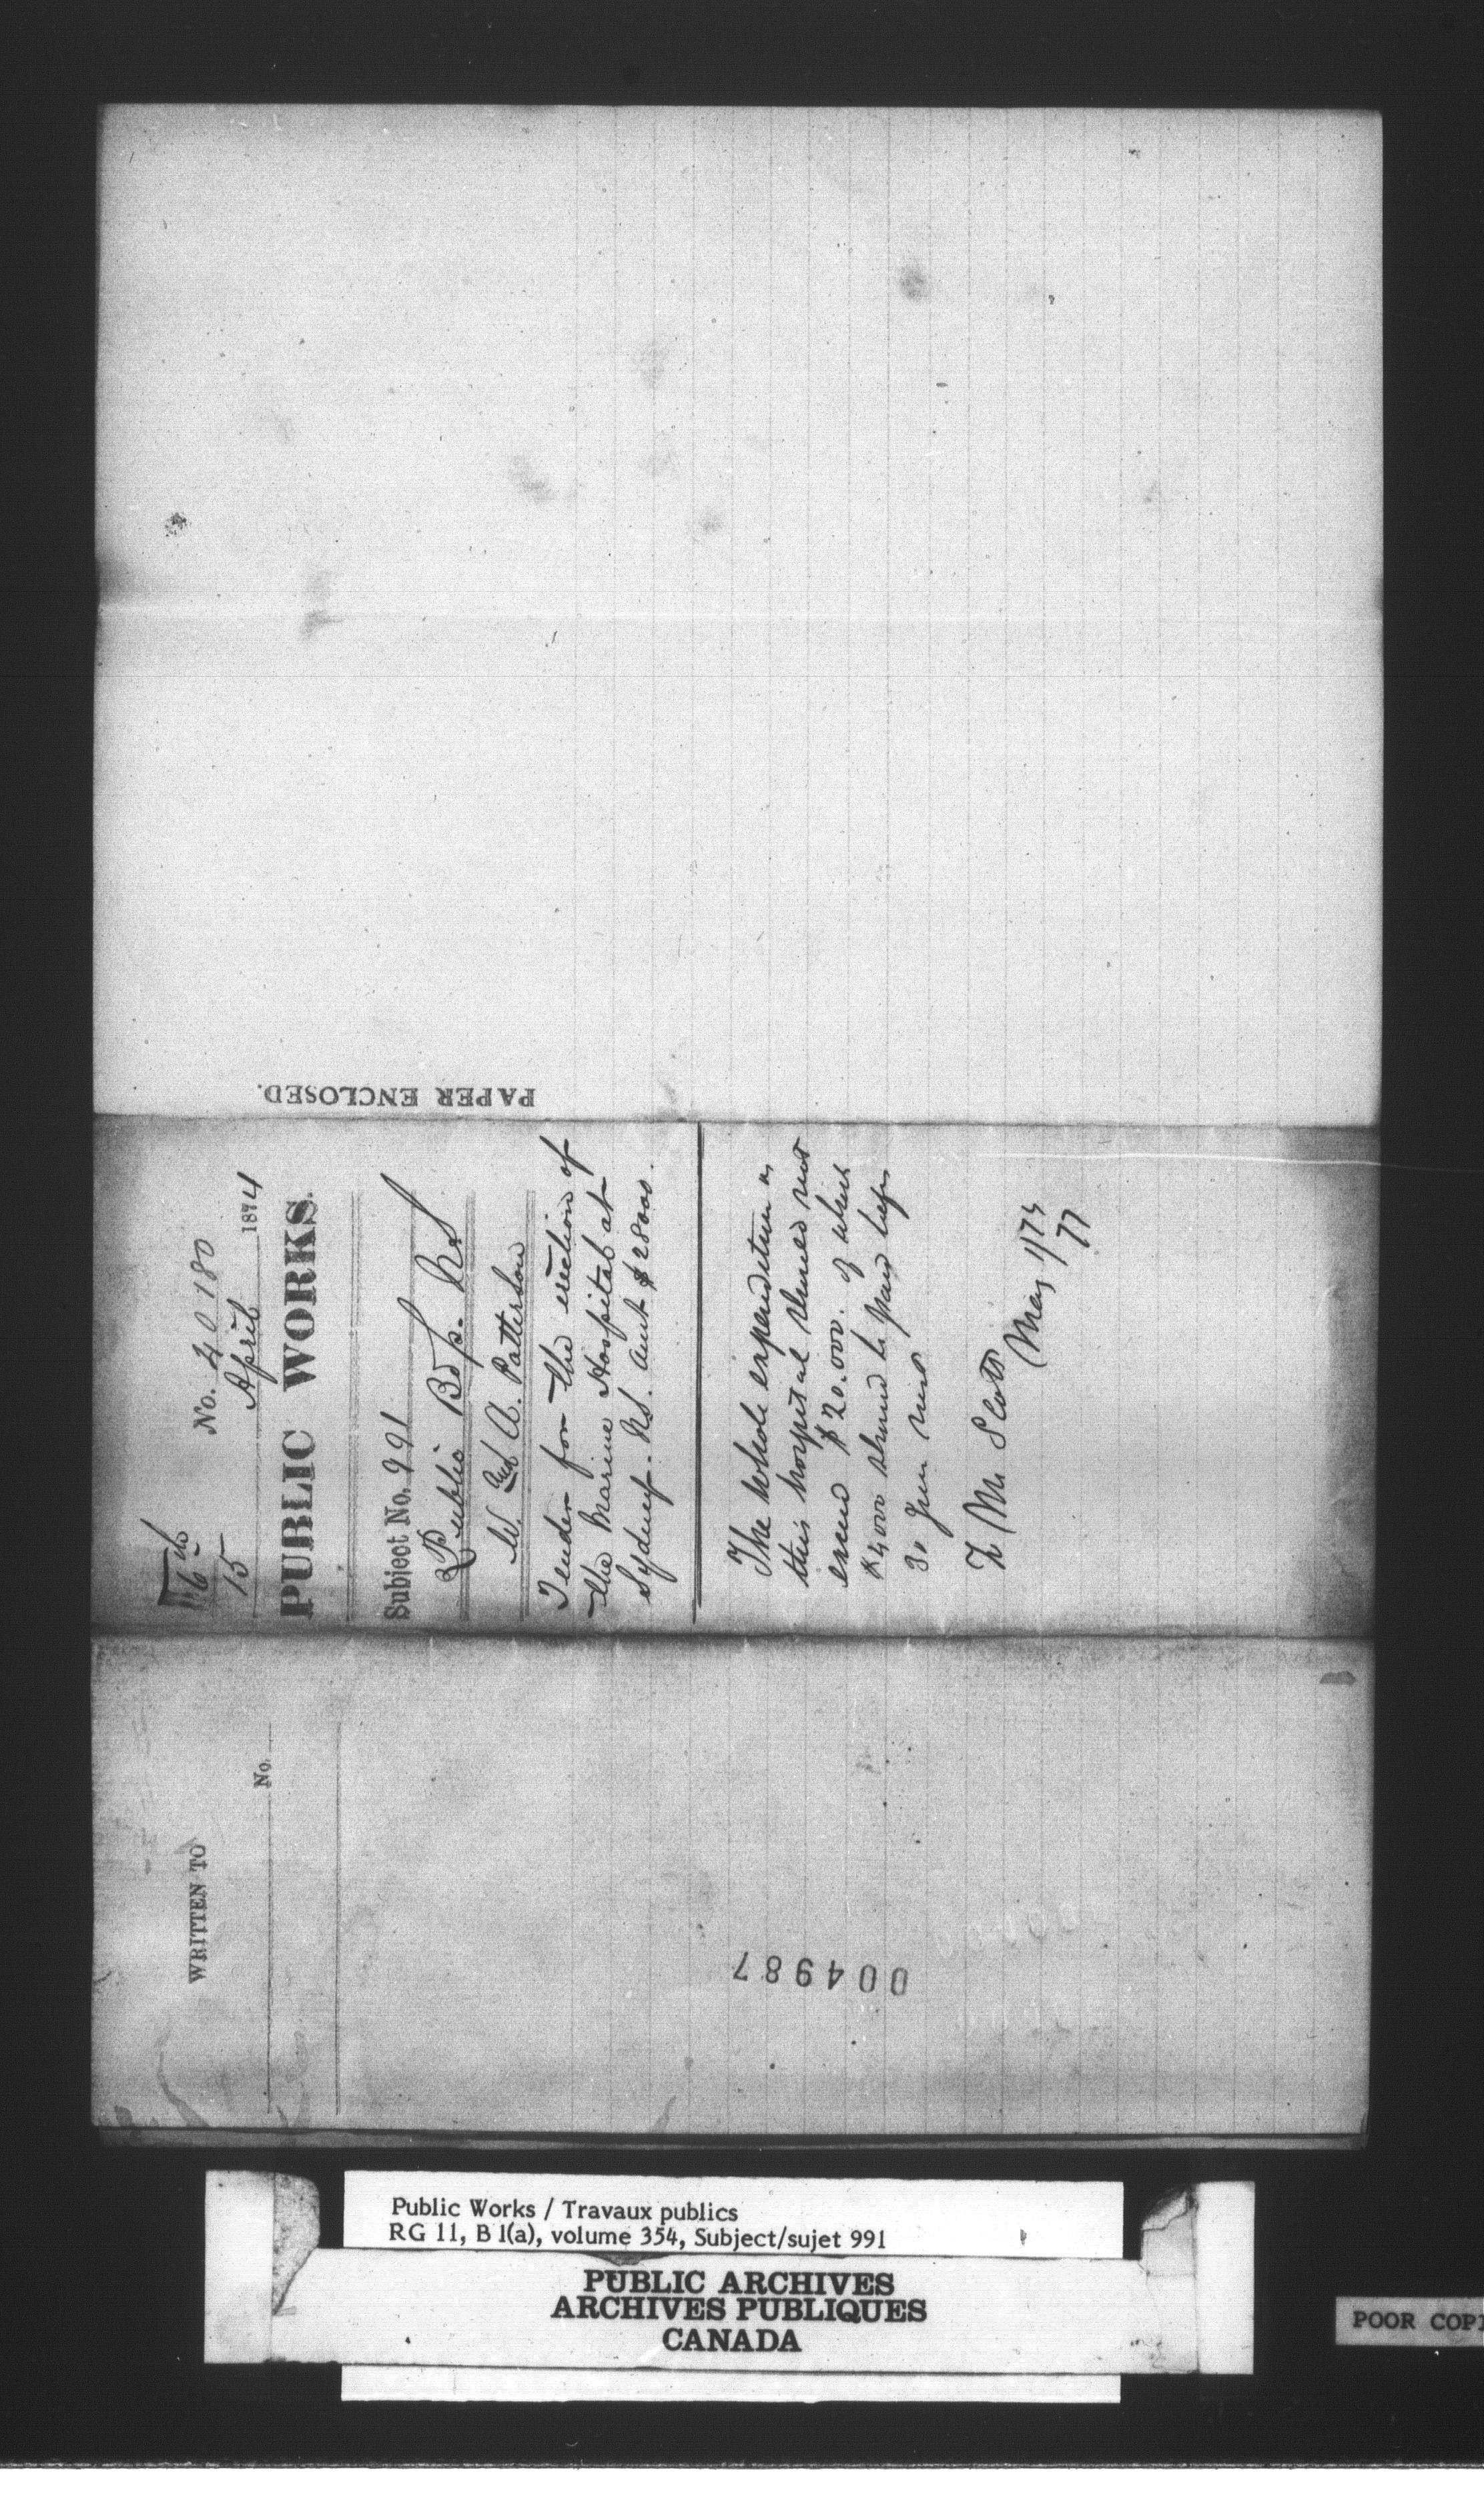 PAPER ENCLOSED.
6th
No. 40180
15 April 1874
PUBLIC WORKS.
Subject No. 991
Public Bds. NS
W. and A. Patterson
Tender for the erection of
the Marine Hospital at
Sydney. NS. amt $28000.
The whole expenditure on
this hospital should not
exceed $20.000. of which
$4,000 should be paid before
30 June next
To Mr Scott
May 1/74
WRITTEN TO
No.
004987
Public Works / Travaux publics
RG 11, B 1(a), volume 354, Subject/sujet 991
PUBLIC ARCHIVES
ARCHIVES PUBLIQUES
CANADA
POOR COPI